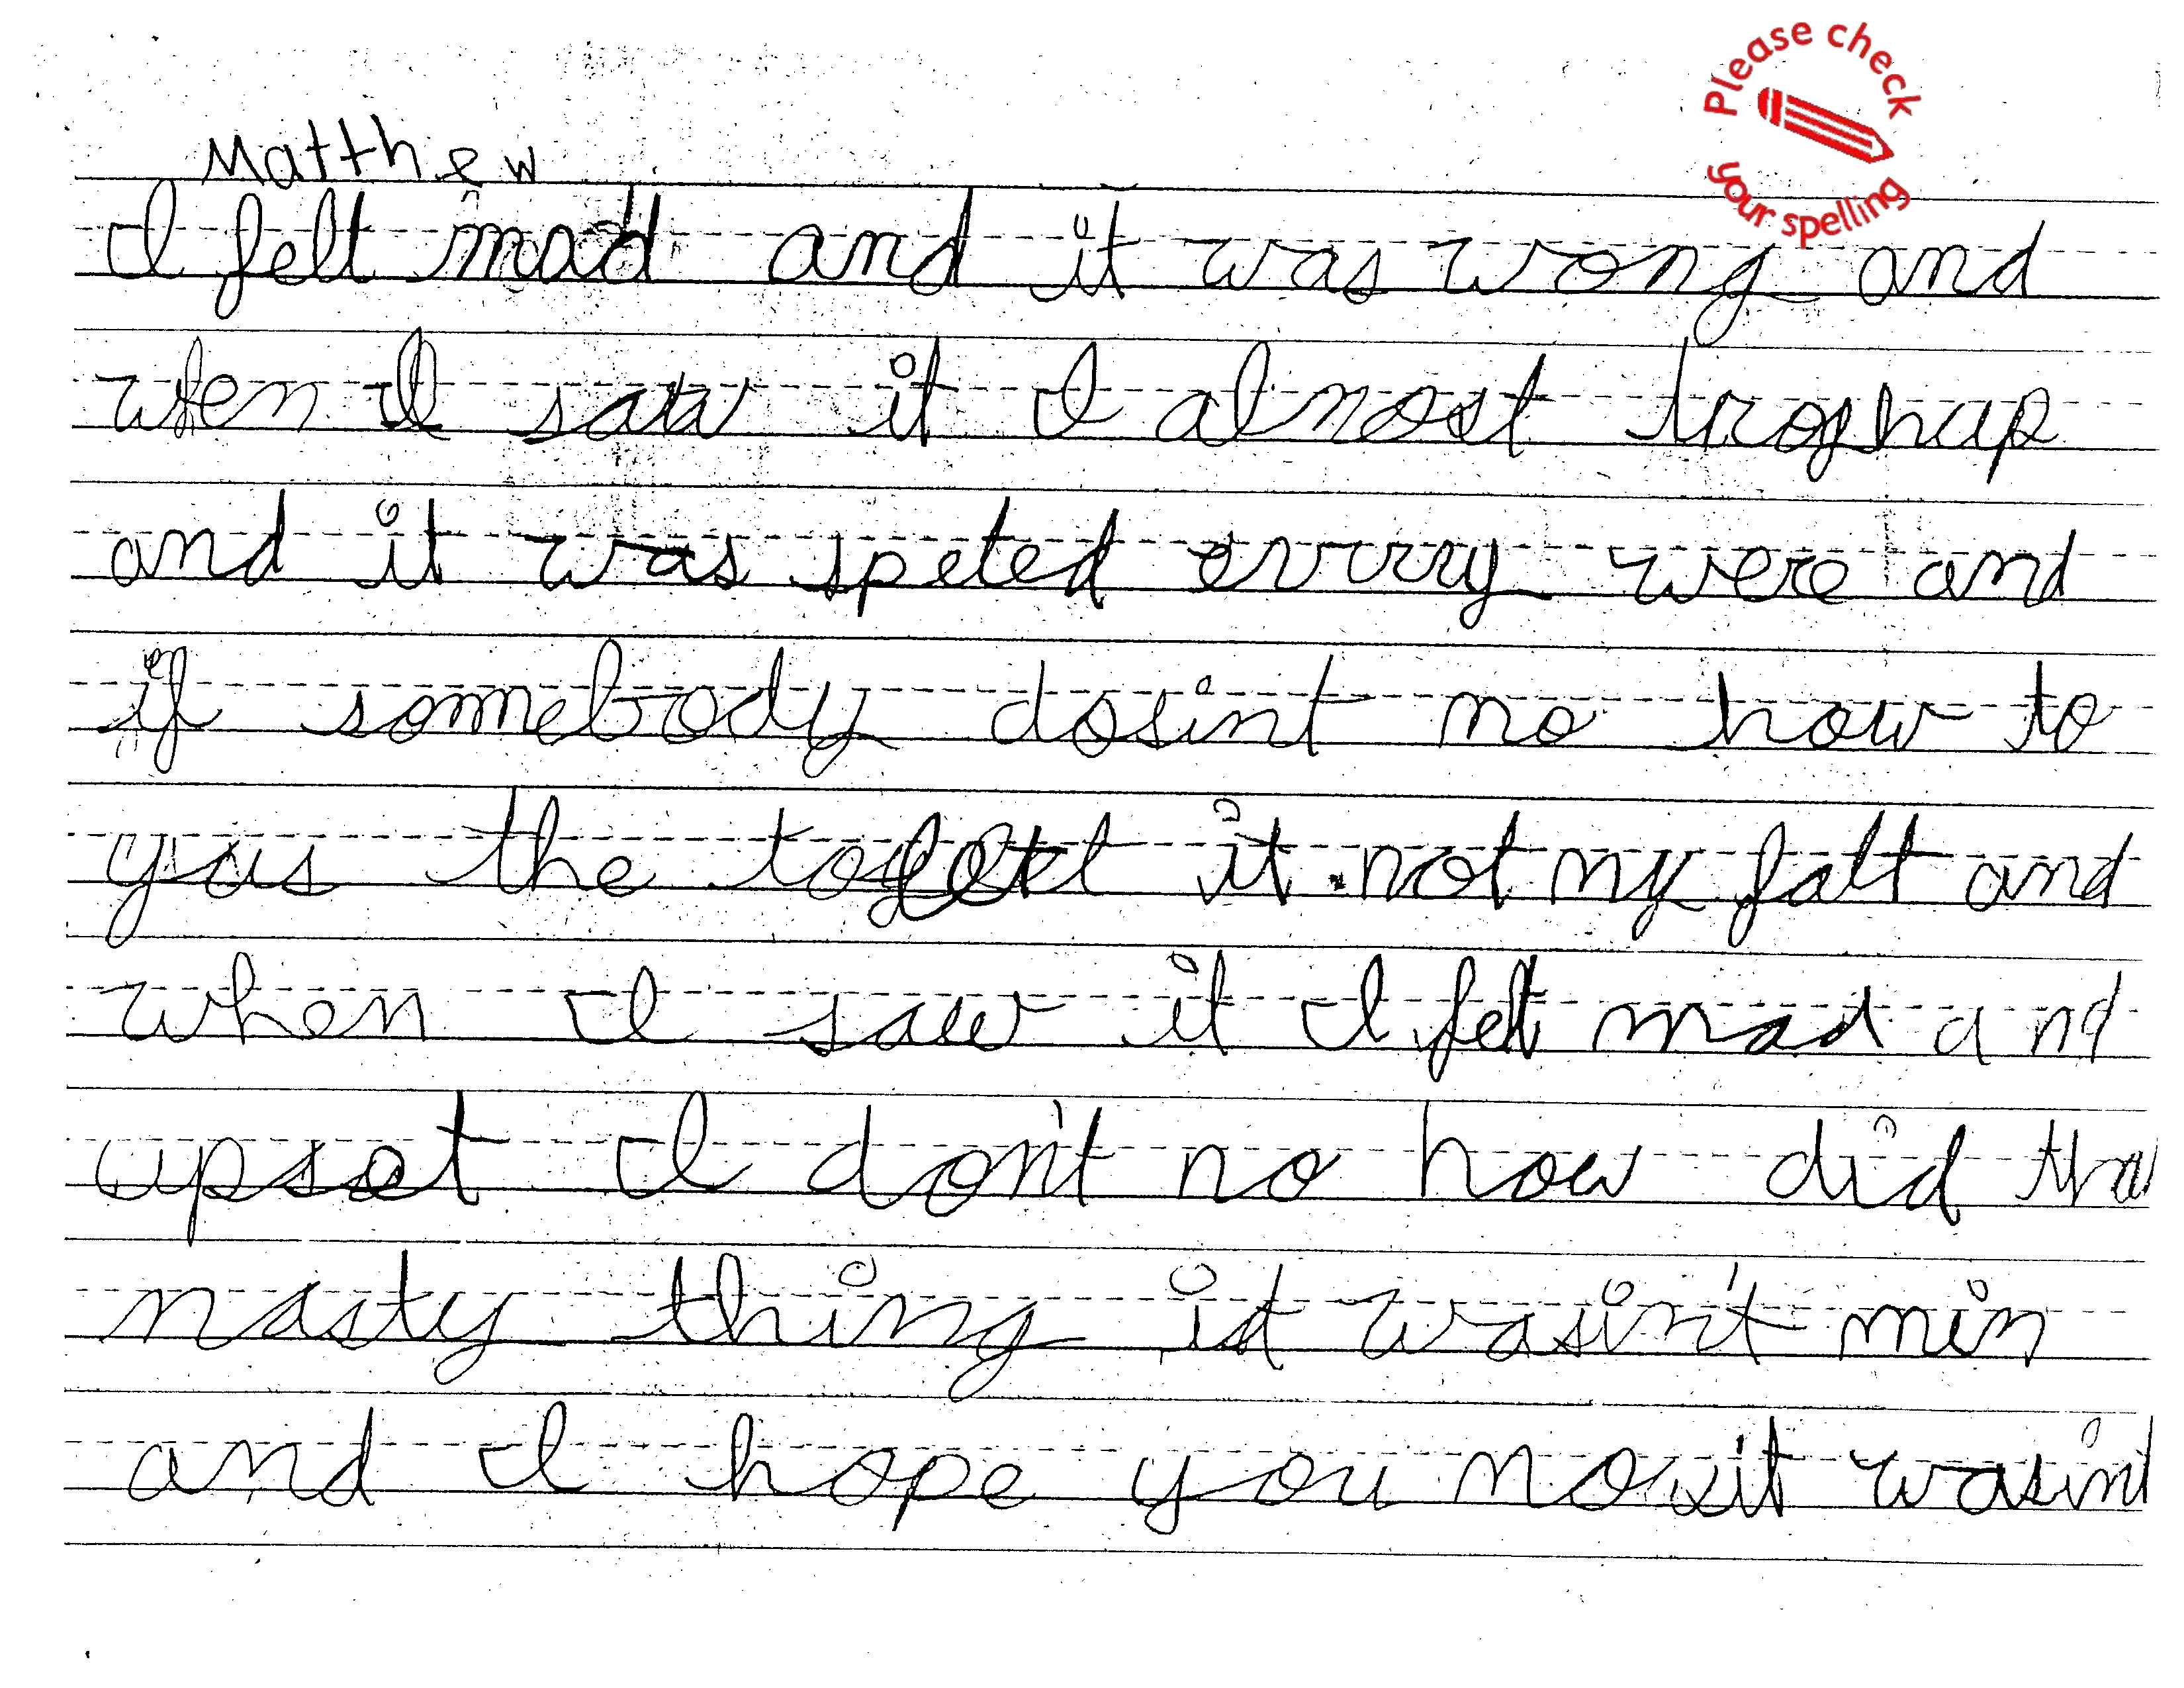 Please check
your spelling
Matthew
I felt mad and it was wrong and
when I saw it I almost
and it was speted evrry were and
if somebody dosint no how to
yus the it not my falt and
when I saw it I felt mad and
upset I don't no how did tha
nasty thing it wasin't min
and I hope you no it wasint